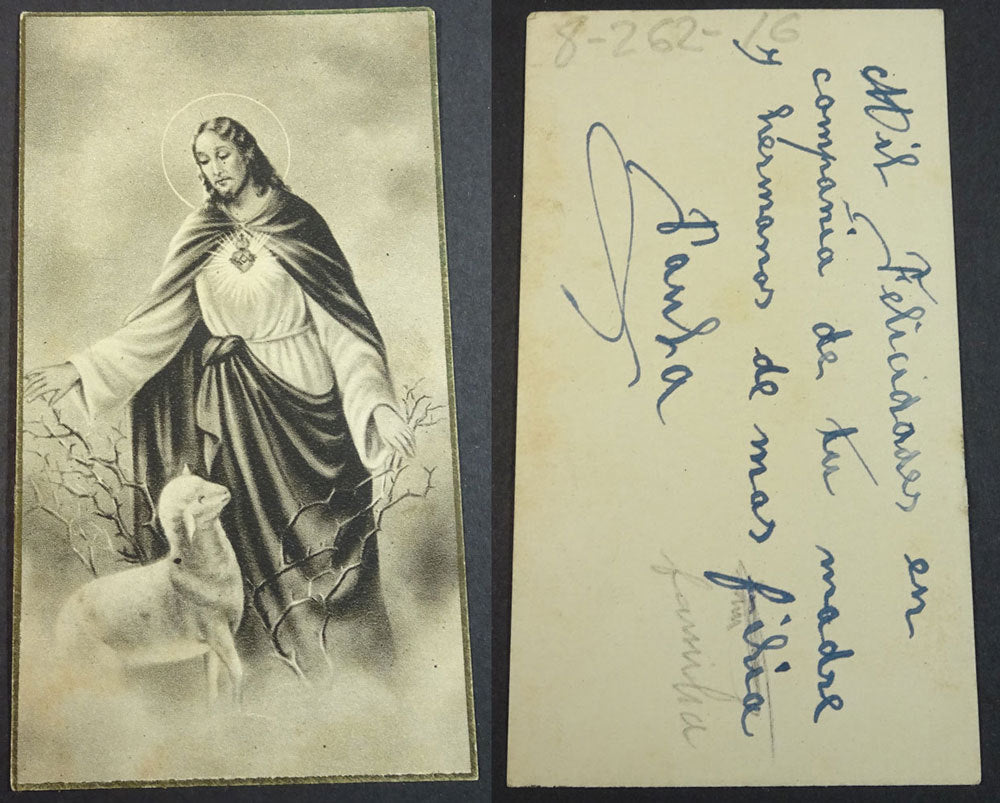 8-262-16
Mil Felicidades en
compañia de tu madre
y hermanos de mas filia
familia